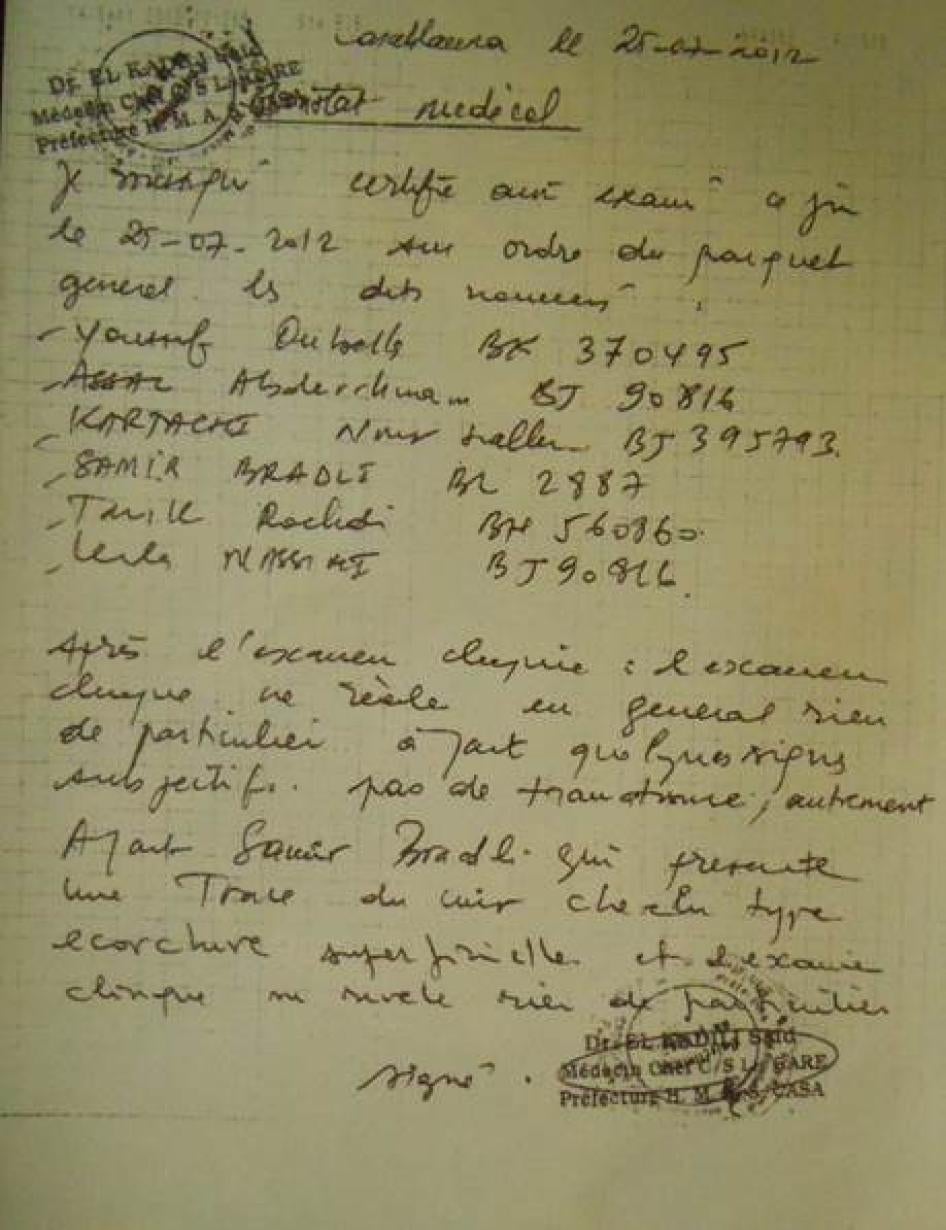 Casablanca le 25-07-2012
Dr. EL KADILI Said
Médecin Chef C/S LA GARE
Préfecture H. M. A.
Constat medical
Je certifie avoir examiné ce jour
le 25-07-2012 sur ordre du parquet
general les dits :
- Youssef BK 370495
- ASSAL Abderrhman BJ 90816
- KARTACHI Nour BJ 395793.
- SAMIR BRADLI BL 2887
- Tarik Rochdi BH 560860.
- Leila NASSIMI BJ 90816.
Après l'examen clinique : l'examen
clinique ne révèle en general rien
de particulier à part quelques signes
subjectifs. pas de , autrement
Apart Samir Bradli qui presente
une Trace du cuir chevelu type
ecorchure superficielle et l'examen
clinique ne revele rien de particulier
signé.
Dr. EL KADILI Said
Médecin Chef C/S LA GARE
Préfecture H. M. CASA